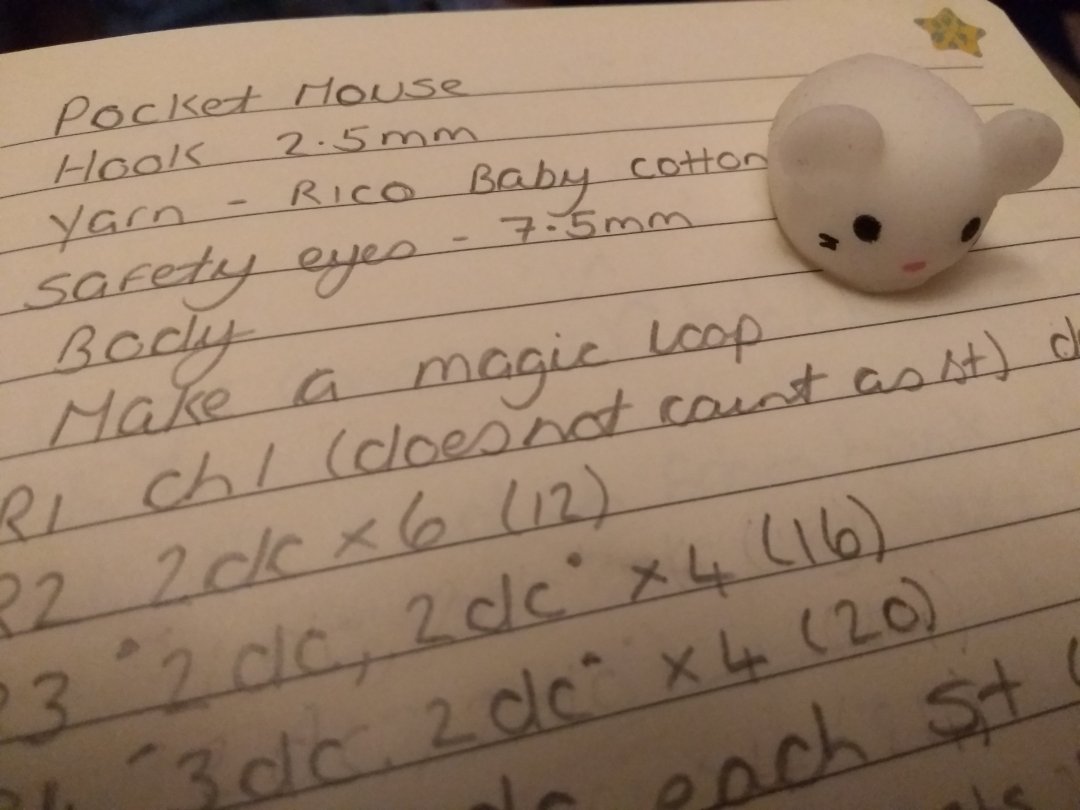 Pocket Mouse
Hook 2.5mm
Yarn - Rico Baby cotton
Safety eyes - 7.5mm
Body
Make a magic loop
R1 ch1 (does not count as st) d
R2 2dc x 6 (12)
R3 "2dc, 2dc" x 4 (16)
"3dc, 2dc" x 4 (20)
each st (